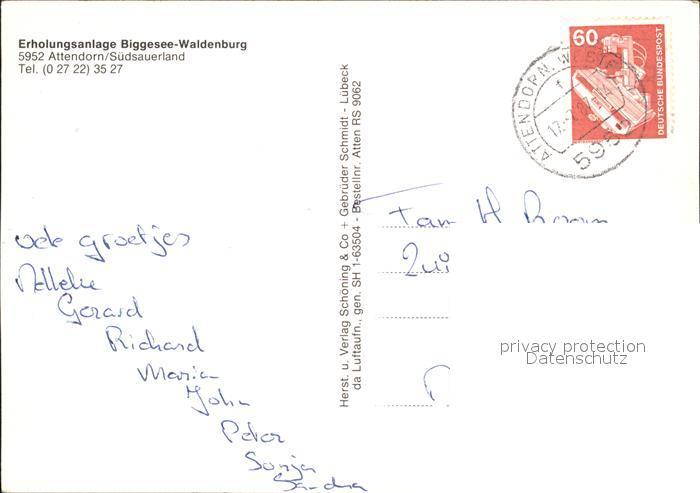 Erholungsanlage Biggesee-Waldenburg
5952 Attendorn/Südsauerland
Tel. (0 27 22) 35 27
60
DEUTSCHE BUNDESPOST
ATTENDORN, WESTF
5952
Herst. u. Verlag Schöning & Co + Gebrüder Schmidt - Lübeck
da Luftaufn., gen. SH 1-63504 - Bestellnr. Atten RS 9062
Fam H
groetjes
Gerard
Richard
Maria
John
Peter
Sonja
Sandra
privacy protection
Datenschutz